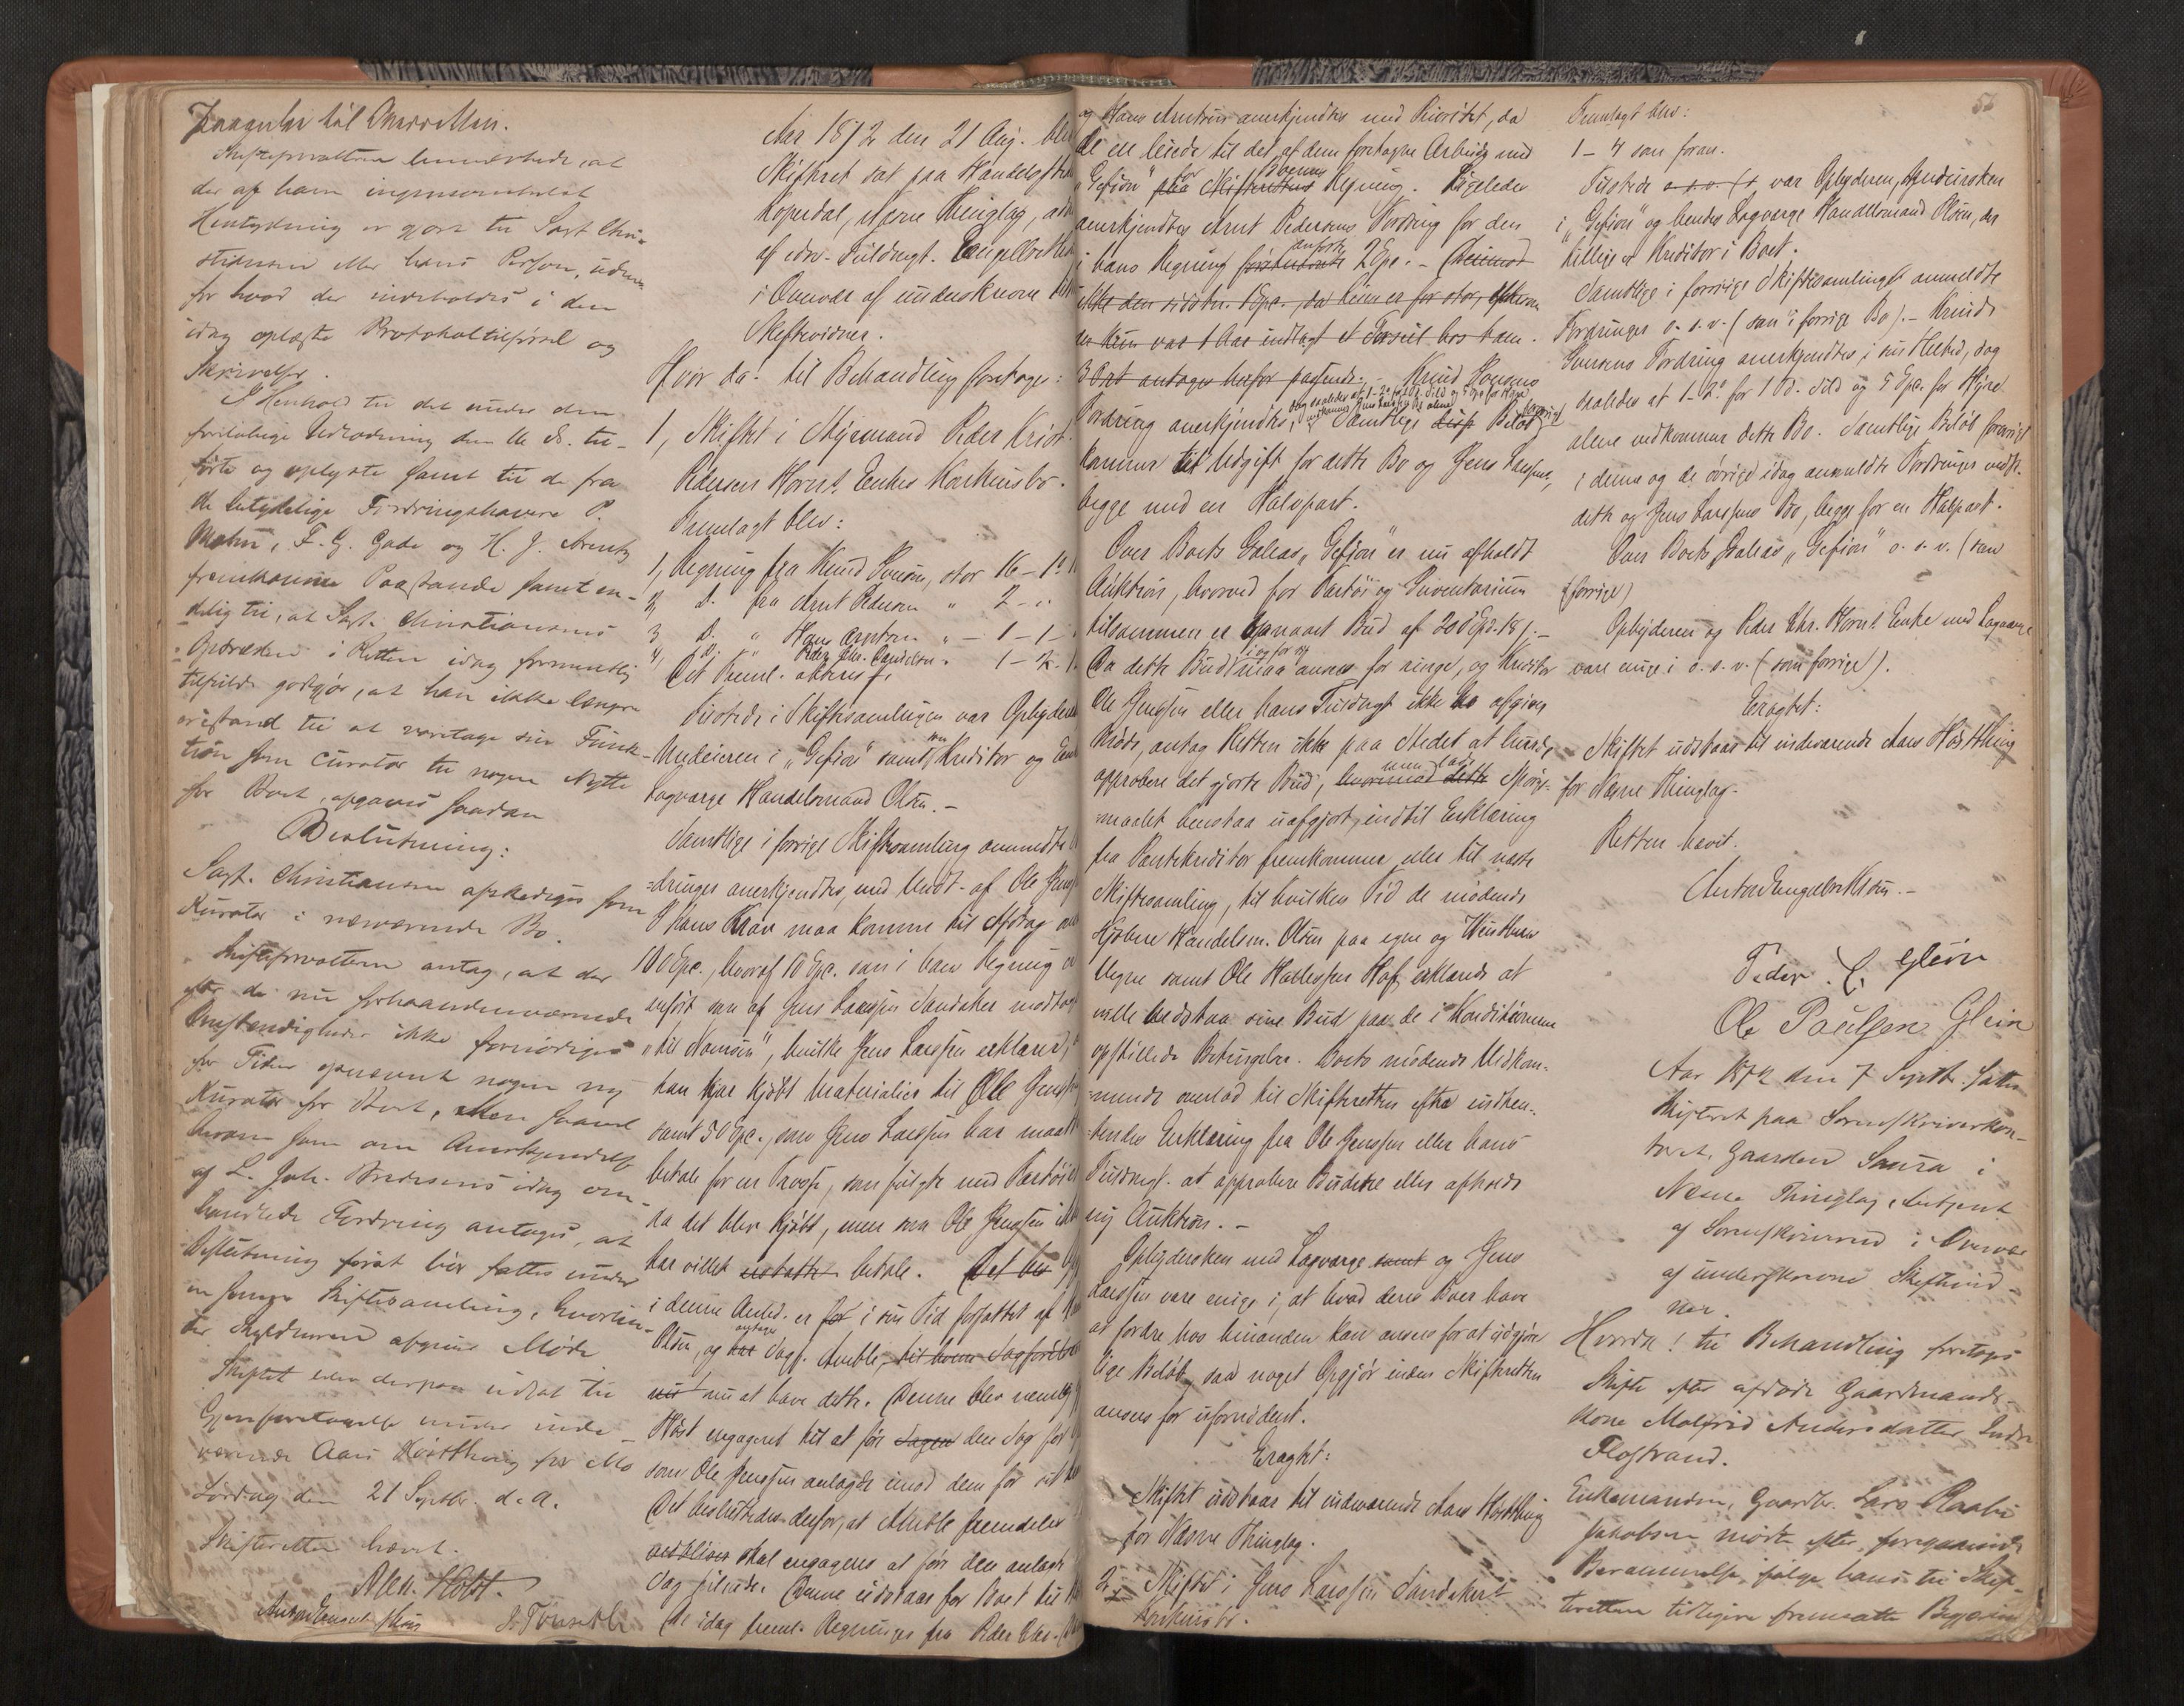 Skifteforvalteren bemærkede, at
der af ham ingensomhelst
Hentydning er gjort til Sagf. Chri-
stiansen eller hans Person, uden-
for hvad der indeholdes i den
idag oplæste Protokoltilførsel og
Skrivelse.
I Henhold til det under den
foreløbige Udlodning den 16 ds. til-
førte og oplyste samt til de fra
de betydelige Fordringshavere P.
F. G. Gade og H. J.
fremkomne Paastande samt en-
delig til, at Sagf. Christiansens
Optræden i Retten idag
tilfulde godtgjør, at han ikke længere
er istand til at varetage sin Funk-
tion som Curator til nogen Nytte
for Boet, afgaves saadan
Beslutning:
Sagf. Christiansen afskediges som
Kurator i nærværende Bo.
Skifteforvalteren antog, at der
efter de nu forhaandenværende
Omstændigheder ikke fornødiges
for Tiden opnævnt nogen ny
Kurator for Boet, Men saavel
herom som om Anerkjendelse
af L. Joh. idag om-
handlede Fordring antages, at
Beslutning først bør fattes under
en senere Skiftesamling, hvorun-
der Skyldneren afgiver Møde
Skiftet blev derpaa udsat til
Gjenforetagelse under inde-
værende Aars Høstthing for Mo
Lørdag den 21 Septbr. d. A.
Skifteretten hævet.
Alex. Holst.
Aar 1872 den 21 Aug. blev
Skifteret sat paa Handelsstedet
Næsne Thinglag,
af edsv. Fuldmægt. Engelbrethsen
i Overvær af underskrevne
Skiftevidner.
Hvor da til Behandling foretages:
1, Skiftet i Styrmand Peder Krist.
Pedersen Horns Enkes Konkursbo.
Fremlagt blev:
1, Regning fra Knud Jensen, stor 16 - 1
2, D. fra Arnt Pedersen " 2 - "
3, D. " Hans Arntsen " - 1 - 1 -
4, D. Peder Chr. Danielsen " 1 - 2 - 1
Det Freml. afskrives.
Tilstede i Skiftesamlingen var Opbydersken
Medeieren i „Gefion" samt Kreditor og
Lagværge Handelsmand Olsen. -
Samtlige i forrige Skiftesamling anmeldte
dringer anerkjendtes, med Undt. af Ole Jens
I hans Krav maa komme til Afdrag
100 Spc., hvoraf 10 Spc. som i hans Regning
anført som af Jens Larssen Sandaker modtaget
„til Namsen", hvilke Jens Larssen erklærede,
han har kjøbt Materialier til Ole Jens
samt 50 Spc., som Jens Larssen har maatte
betale for en Trosse, som fulgte med Fartøiet
da det blev kjøbt, men som Ole Jenssen ikke
har villet erstatte betale. Det blev
i denne Anled. er for i sin Tid forfattet af
Olsen, og antages Sagf.
nu at have dette. Denne blev nemlig
Høst engageret til at føre Sagen den Sag for
som Ole Jenssen anlagde imod dem for
Det besluttedes derfor, at fremdeles
vedbliver skal engageres at føre den anlagte
Sag tilende. Denne udstaar for Boet til
De idag freml. Regninger fra Peder Chr.
og Hans Arntsen anerkjendtes med Prioritet, da
de ere leiede til det af dem foretagne Arbeide med
„Gefion" paa for Skifterettens Boernes Regning. Ligeledes
anerkjendtes Arnt Pedersens Fordring for den
i hans Regning anførte 2 Spc. -
ikke den sidste 1 Spc., da
der kun var 1 Aar indlagt et Torseil hos ham.
3 Ort antages herfor passende. - Knud Jensens
Fordring anerkjendtes, Samtlige disse Beløb
kommer til Udgift for dette Bo og Jens Larssens,
begge med en Halvpart.
Over Boets Galeas „Gefion" er nu afholdt
Auktion, hvorved for Fartøi og Inventarium
tilsammen er opnaaet Bud af 200 Spd. 18 ß. -
Da dette Bud i og for sig maa ansees for ringe, og Kreditor
Ole Jenssen eller hans Fuldmægt. ikke har afgivet
Møde, antog Retten ikke paa Stedet at burde
approbere det gjorte Bud, hvorimod dette men lade Spørgs-
maalet henstaa uafgjort, indtil Erklæring
fra Pantekreditor fremkommer eller til næste
Skiftesamling, til hvilken Tid de mødende
Kjøbere Handelsm. Olsen paa egne og
Vegne samt Ole Hof erklærede at
ville vedstaa sine Bud paa de i Konditionerne
opstillede Betingelser. Boets mødende Vedkom-
mende overlod til Skifteretten efter indhen-
tendes Erklæring fra Ole Jenssen eller hans
Fuldmægt. at approbere Budene eller afholde
ny Auktion. -
Opbydersken med Lagværge samt og Jens
Larssen vare enige i, at hvad deres Boer have
at fordre hos hinanden kan ansees for at udgjøre
lige Beløb, saa noget Opgjør inden Skifteretten
ansees for ufornødent.
Eragtet:
Skiftet udstaar til indeværende Aars Høstthing
for Næsne Thinglag.
2, Skiftet i Jens Larssen Sandakers
Konkursbo.
Fremlagt blev:
1 - 4 som foran.
Tilstede o.s.v. (s var Opbyderen, Medeiersken
i „Gefion" og hendes Lagværge Handelsmand Olsen, der
tillige er Kreditor i Boet.
Samtlige i forrige Skiftesamlinget anmeldte
Fordringer o. s. v. (som i forrige Bo). - Knud
Jensens Fordring anerkjendtes i sin Helhed, dog
saaledes at 1-2 for 1 Td. Sild og 5 Spc. for Hyre
alene vedkommer dette Bo. Samtlige Beløb forøvrigt
i denne og de øvrige idag anmeldte Fordringer vedk.
dette og Jens Larssens Bo, begge for en Halvpart.
Over Boets Galeas „Gefion" o. s. v. (som
forrige)
Opbyderen og Peder Chr. Horns Enke med Lagværge
vare enige i o. s. v. (som forrige).
Eragtet:
Skiftet udstaar til indeværende Aars Høstthing
for Næsne Thinglag.
Retten hævet.
Anton Engelbrethsen. -
Peder
Ole Paulsen Glein
Aar 1872 den 7 Septb. sattes
Skifteret paa Sorenskriverkon-
toret, Gaarden Saura i
Næsne Thinglag, betjent
af Sorenskriveren i Overvær
af underskrevne Skiftevid-
ner.
Hvorda! til Behandling foretages
Skifte efter afdøde Gaardmands-
kone Malfrid Andersdatter Indre
Flostrand.
Enkemanden, Gaardbr. Lars
Jakobsen mødte efter foregaaende
Berammelse ifølge hans til Skif-
teretten tidligere fremsatte Begjæring